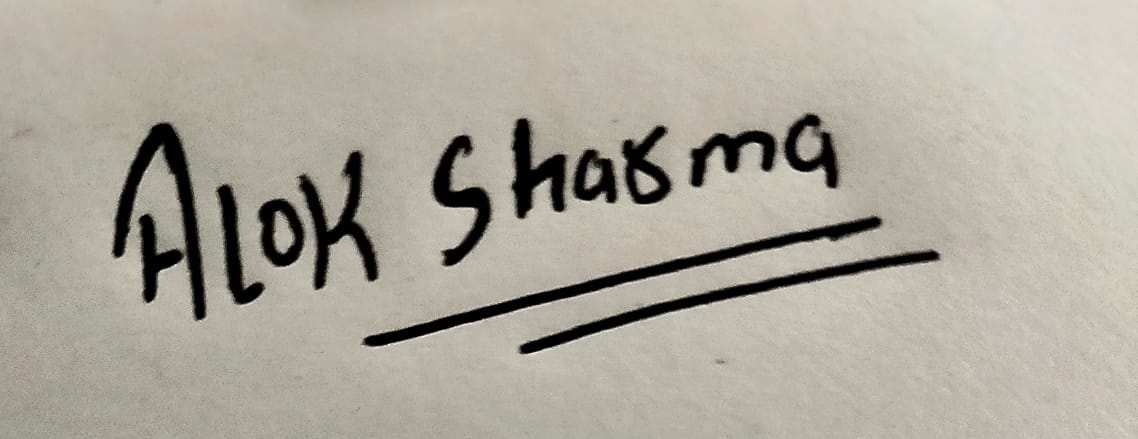 Alok Sharma